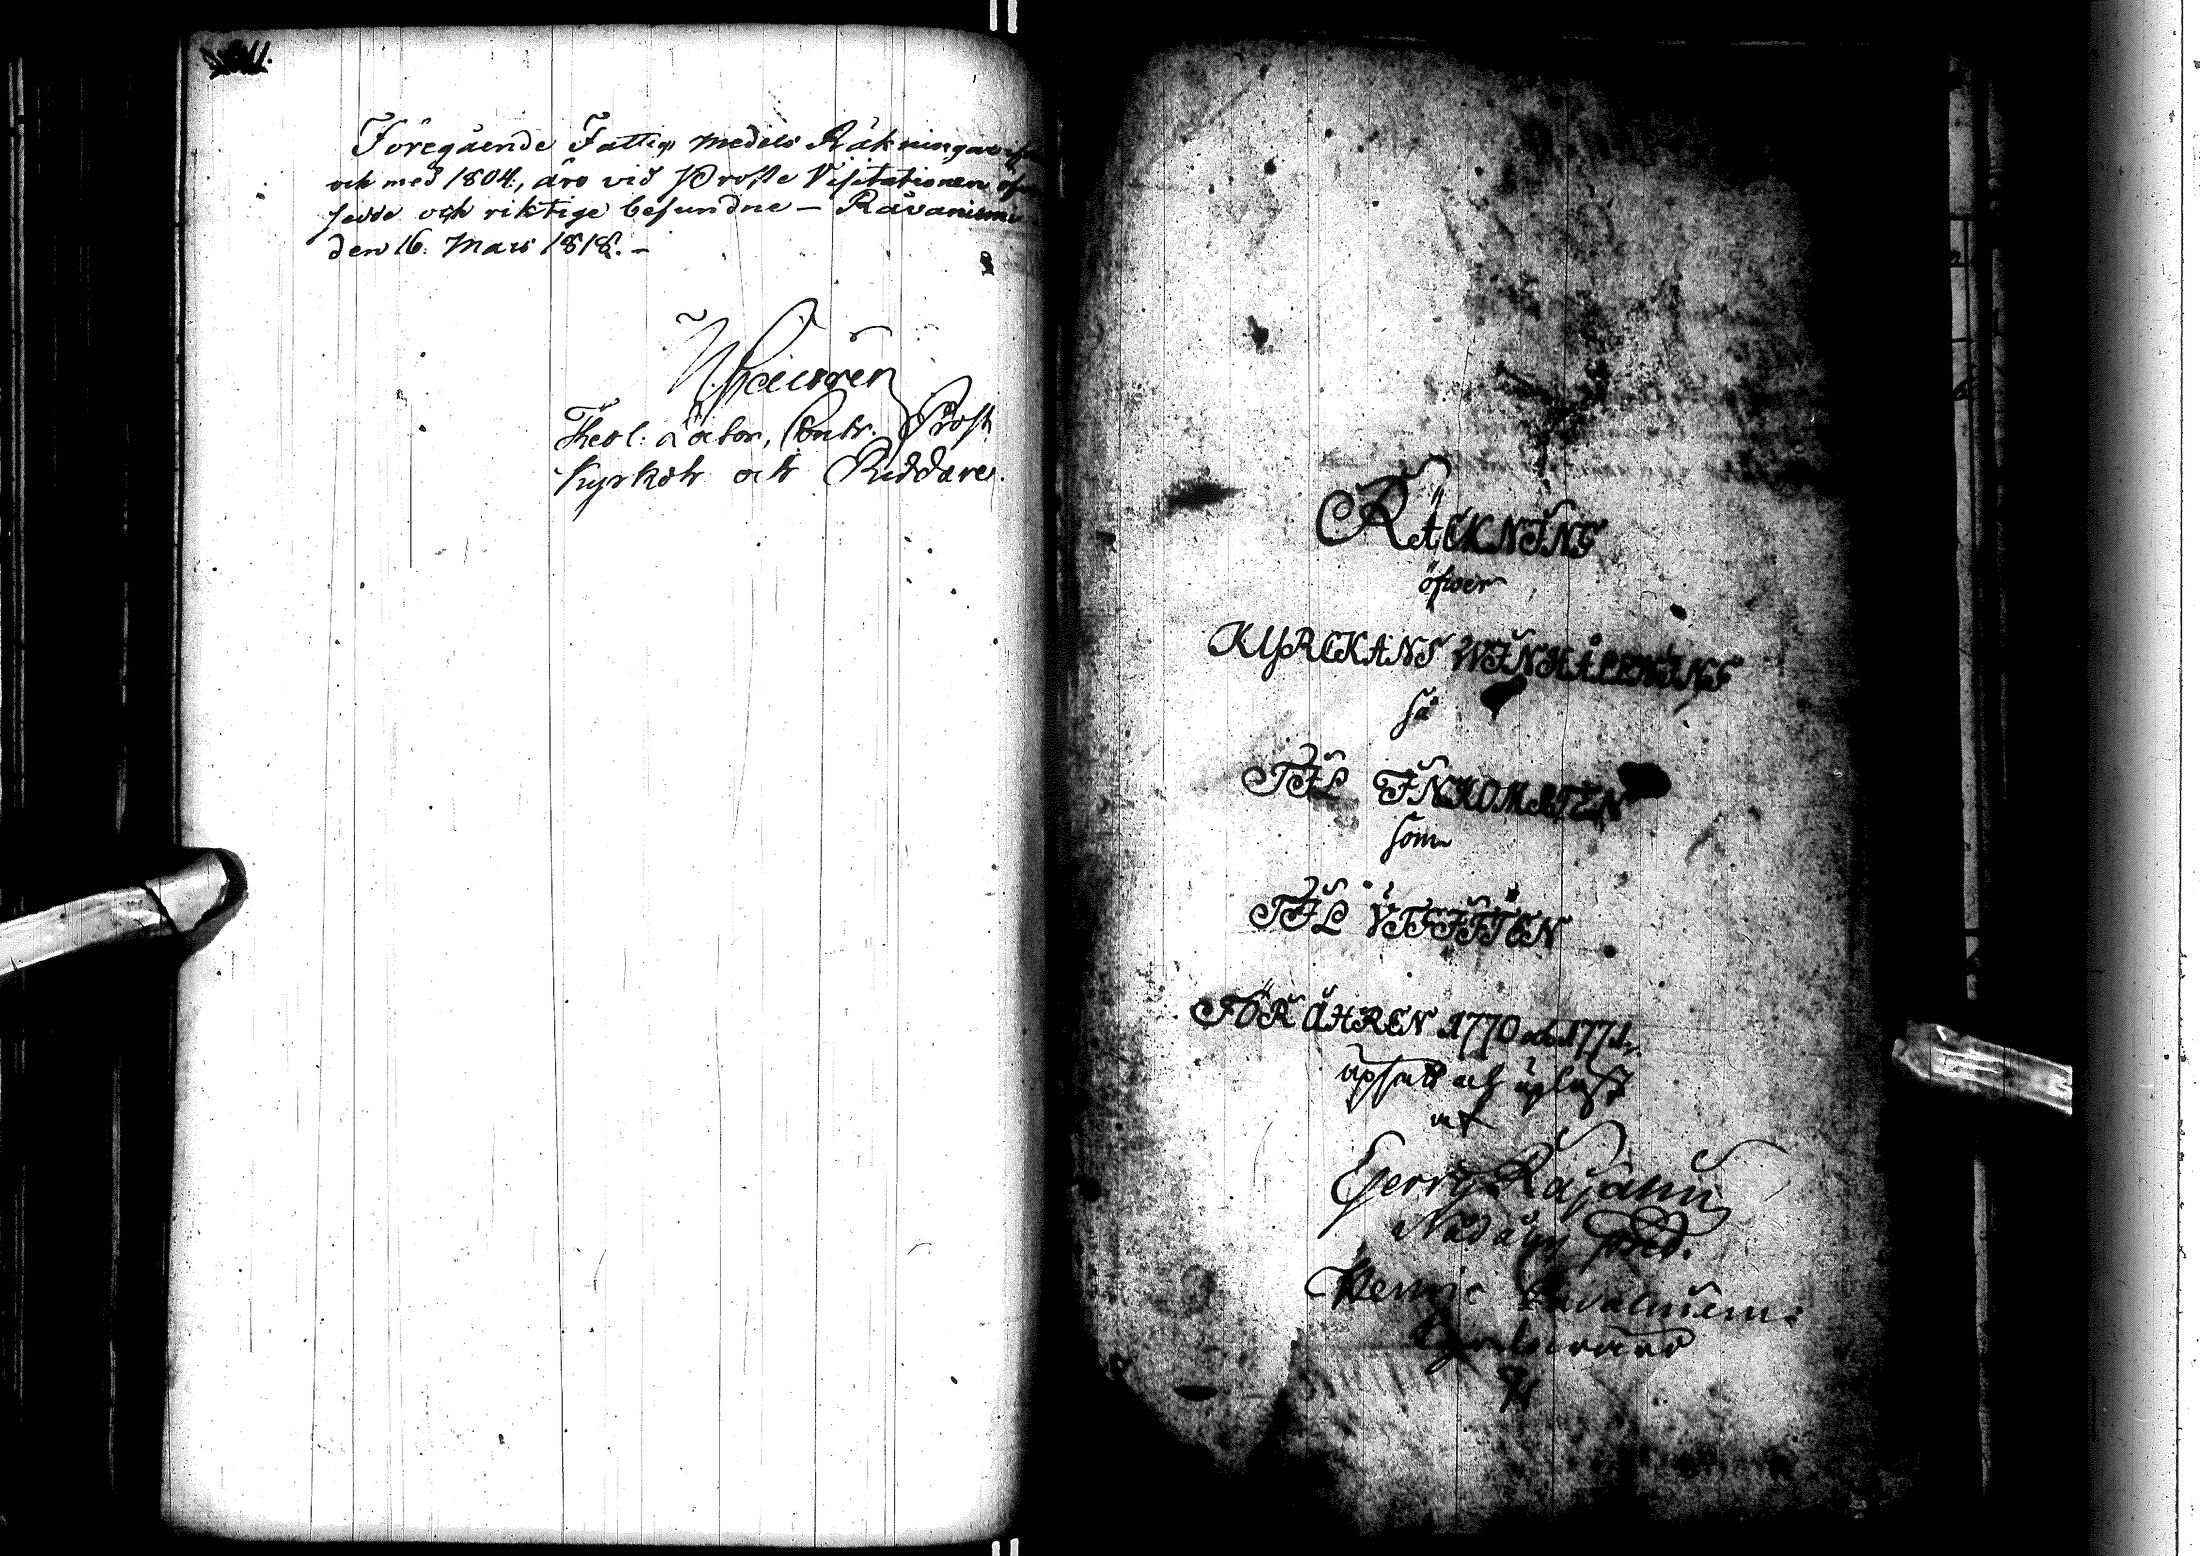 Föregående Fattig Medels Räkningar
och med 1804, äro vid Prosste Visitationen
sedde och riktige befundne – Råvaniemi
den 16. Mars 1818. –
Theol: Lector, Contr. Prost
Kyrkoh och Riddare.
RÄCKNING
öfwer
KYRCKANS WINHÅLNING
så
TIL INKOMSTEN
som
TIL UTGIFTEN
FÖR ÅHREN 1770 och 1771.
upsatt och uplyst
af
Nådårs Pred.
Kyrckiovärd